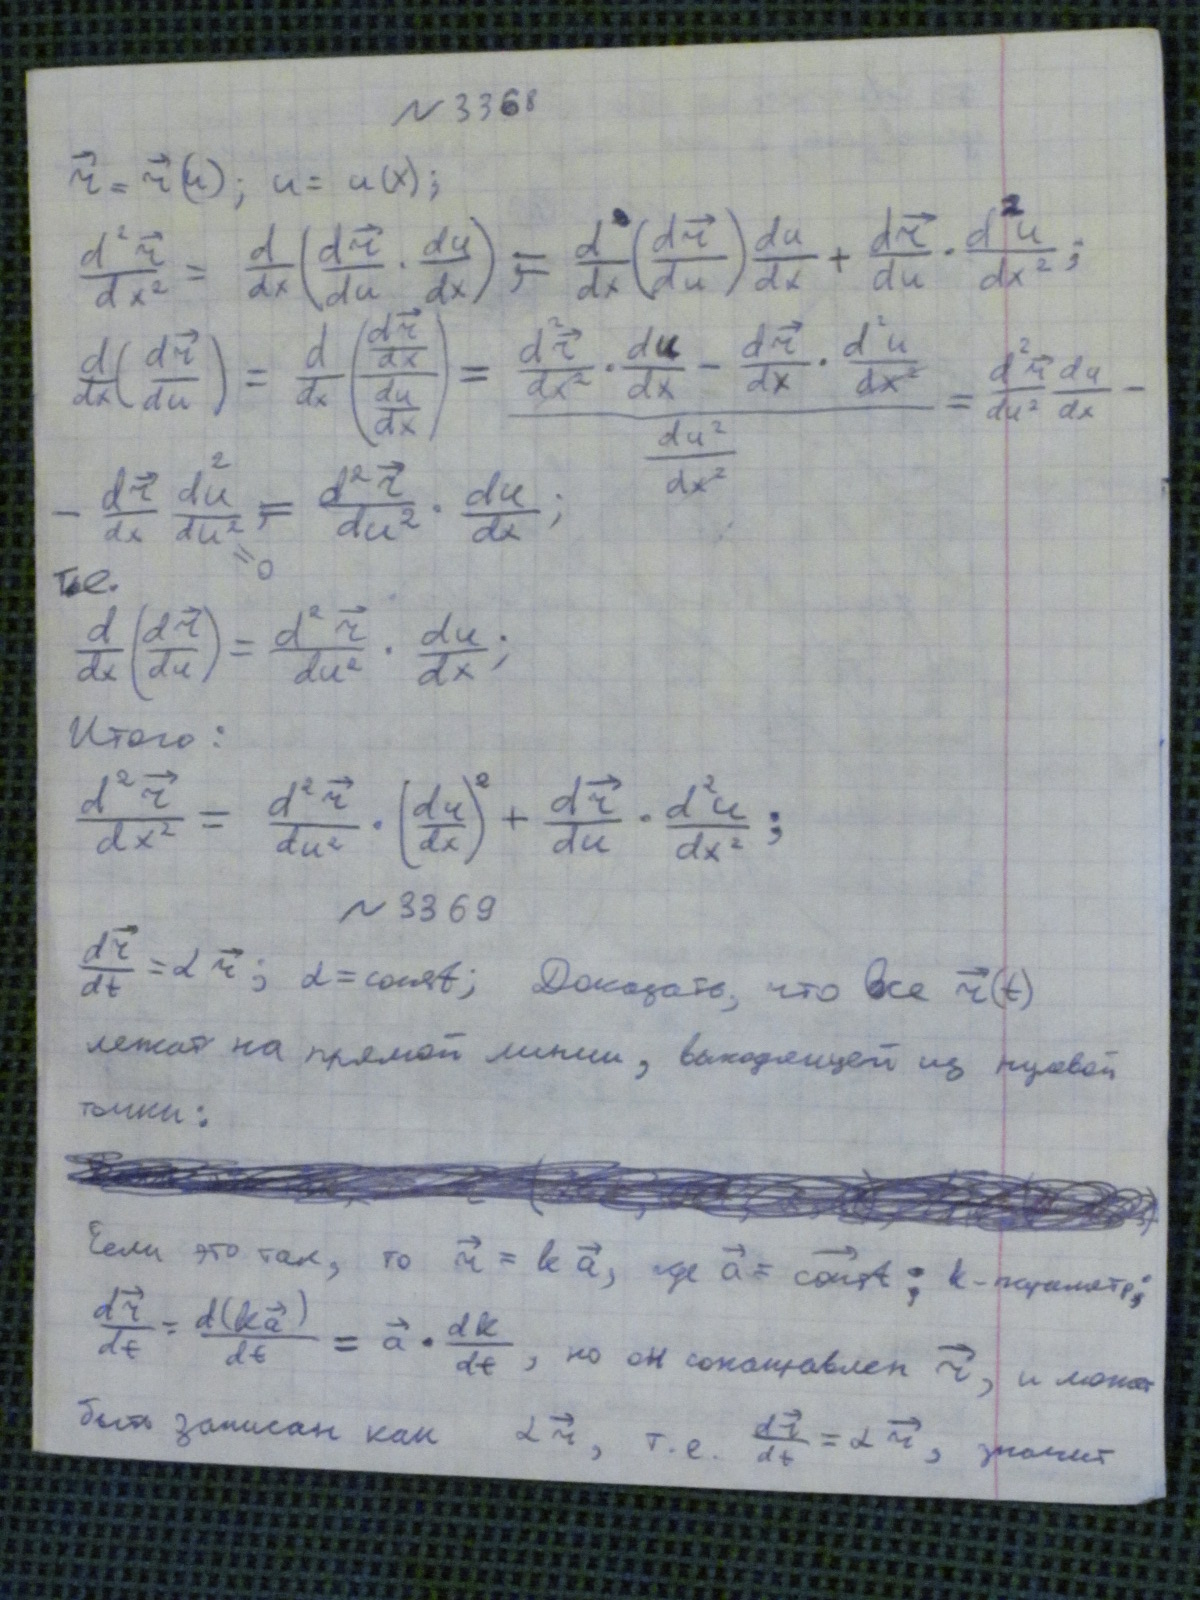 ~ 3368
r⃗ = r⃗(u); u = u(x);
d²r⃗/dx² = d/dx (dr⃗/du · du/dx); = d/dx (dr⃗/du) du/dx + dr⃗/du · d²u/dx²;
d/dx (dr⃗/du) = d/dx ((dr⃗/dx)/(du/dx)) = (d²r⃗/dx² · du/dx − dr⃗/dx · d²u/dx²)/(du²/dx²) = d²r⃗/du² du/dx −
− dr⃗/dx du²/du² ; = d²r⃗/du² · du/dx;
= 0
т.е.
d/dx (dr⃗/du) = d²r⃗/du² · du/dx;
Итого:
d²r⃗/dx² = d²r⃗/du² · (du/dx)² + dr⃗/du · d²u/dx²;
~ 3369
dr⃗/dt = αr⃗; α = const; Доказать, что все r⃗(t)
лежат на прямой линии, выходящей из нулевой
точки:
Если это так, то r⃗ = ka⃗, где a⃗ = const⃗; k - параметр;
dr⃗/dt = d(ka⃗)/dt = a⃗ · dk/dt, но он сонаправлен r⃗, и может
быть записан как αr⃗, т.е. dr⃗/dt = αr⃗, значит